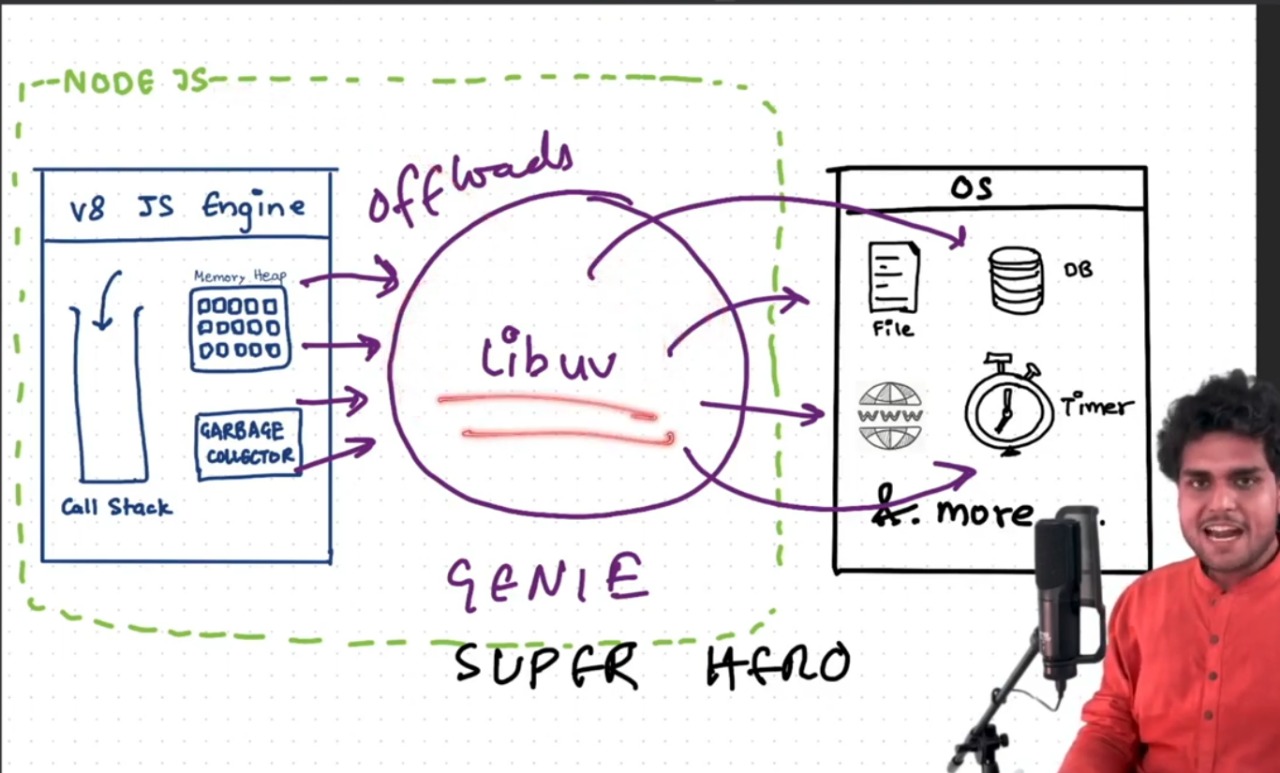 NODE JS
offloads
V8 JS Engine
Memory Heap
GARBAGE
COLLECTOR
Call Stack
Libuv
GENIE
SUPER HERO
OS
File
DB
WWW
Timer
&. more